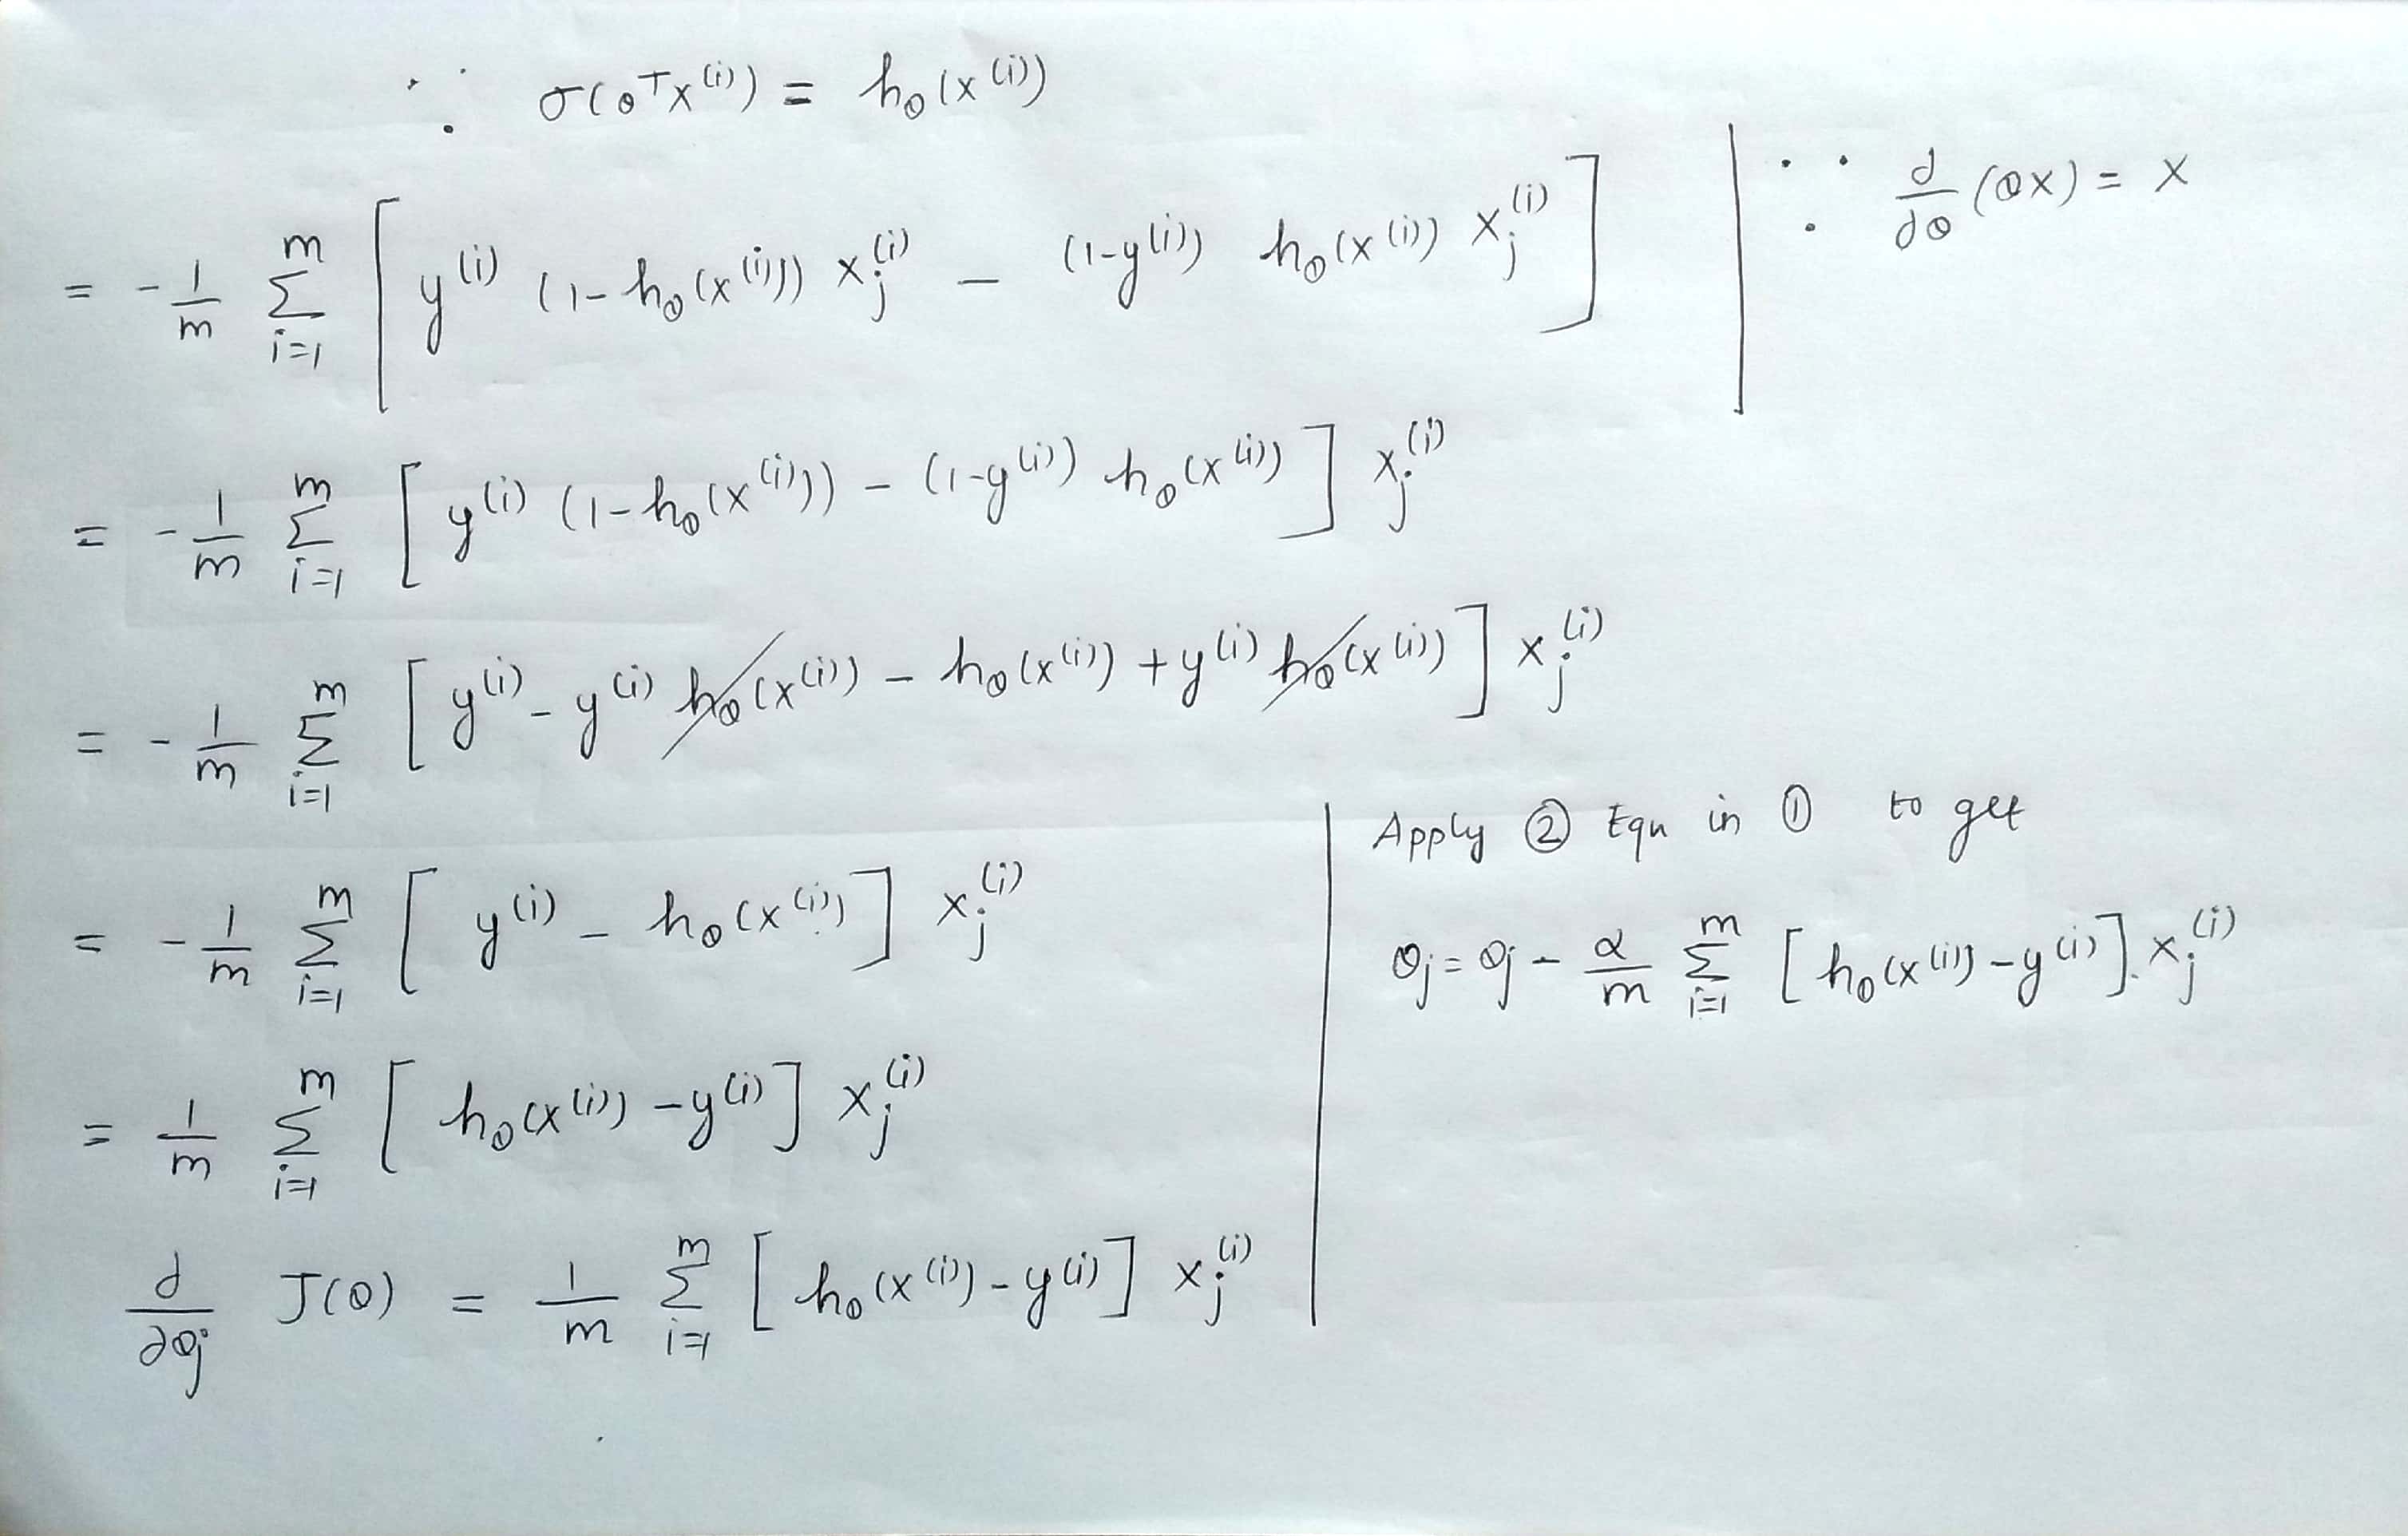 ∵ σ(θᵀx⁽ⁱ⁾) = h_θ(x⁽ⁱ⁾)
= -1/m Σ_{i=1}^{m} [ y⁽ⁱ⁾ (1-h_θ(x⁽ⁱ⁾)) x_j⁽ⁱ⁾ - (1-y⁽ⁱ⁾) h_θ(x⁽ⁱ⁾) x_j⁽ⁱ⁾ ]
∵ d/dθ (θx) = x
= -1/m Σ_{i=1}^{m} [ y⁽ⁱ⁾ (1-h_θ(x⁽ⁱ⁾)) - (1-y⁽ⁱ⁾) h_θ(x⁽ⁱ⁾) ] x_j⁽ⁱ⁾
= -1/m Σ_{i=1}^{m} [ y⁽ⁱ⁾ - y⁽ⁱ⁾ h_θ(x⁽ⁱ⁾) - h_θ(x⁽ⁱ⁾) + y⁽ⁱ⁾ h_θ(x⁽ⁱ⁾) ] x_j⁽ⁱ⁾
= -1/m Σ_{i=1}^{m} [ y⁽ⁱ⁾ - h_θ(x⁽ⁱ⁾) ] x_j⁽ⁱ⁾
= 1/m Σ_{i=1}^{m} [ h_θ(x⁽ⁱ⁾) - y⁽ⁱ⁾ ] x_j⁽ⁱ⁾
∂/∂θ_j J(θ) = 1/m Σ_{i=1}^{m} [ h_θ(x⁽ⁱ⁾) - y⁽ⁱ⁾ ] x_j⁽ⁱ⁾
Apply ② Eqn in ① to get
θ_j = θ_j - α/m Σ_{i=1}^{m} [ h_θ(x⁽ⁱ⁾) - y⁽ⁱ⁾ ]. x_j⁽ⁱ⁾